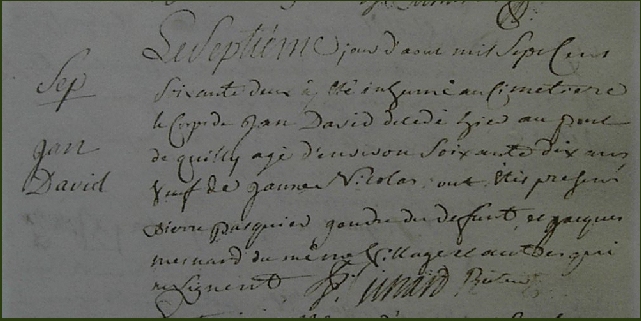 Le Septième jour d'aout mil Sept Cens
Sep
Soixante deux à été inhumé au Cimetiere
le Corps de Jan David decedé hier au pont
Jan
de quilly agé d'environ Soixante dix ans
David
veuf de Janne Nicolas, ont etés presens
Pierre pasquier gendre du defunt, et jacques
mesnard du même Village et autres qui
ne Signent